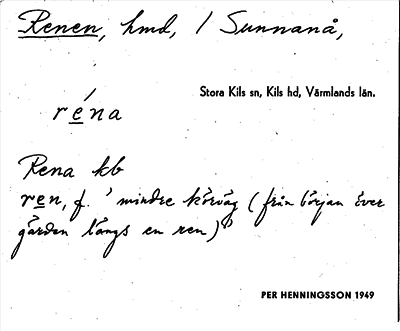 Renen, hmd, / Sunnanå,
Stora Kils sn, Kils hd, Värmlands län.
réna
Rena kb
ren, f. 'mindre körväg (från början över
gärden längs en ren)'
PER HENNINGSSON 1949